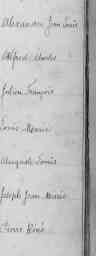 Alexandre Jean Louis
Alfred Charles
Julien François
Louis Marie
Auguste Louis
Joseph Jean Marie
Pierre René